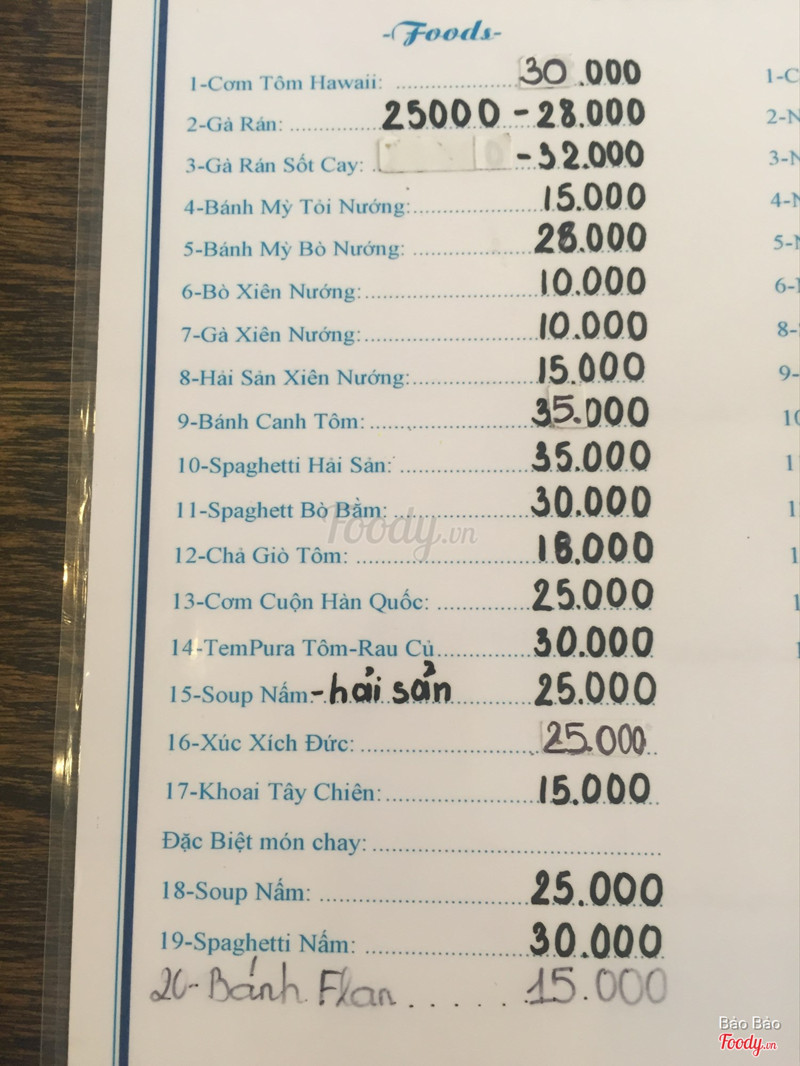 -Foods-
1-Cơm Tôm Hawaii: 30.000
2-Gà Rán: 25000 - 28.000
3-Gà Rán Sốt Cay: -32.000
4-Bánh Mỳ Tỏi Nướng: 15.000
5-Bánh Mỳ Bò Nướng: 28.000
6-Bò Xiên Nướng: 10.000
7-Gà Xiên Nướng: 10.000
8-Hải Sản Xiên Nướng: 15.000
9-Bánh Canh Tôm: 35.000
10-Spaghetti Hải Sản: 35.000
11-Spaghett Bò Bằm: 30.000
12-Chả Giò Tôm: 18.000
13-Cơm Cuộn Hàn Quốc: 25.000
14-TemPura Tôm-Rau Củ 30.000
15-Soup Nấm - hải sản 25.000
16-Xúc Xích Đức: 25.000
17-Khoai Tây Chiên: 15.000
Đặc Biệt món chay:
18-Soup Nấm: 25.000
19-Spaghetti Nấm: 30.000
20-Bánh Flan 15.000
Foody.vn
Bảo Bảo
Foody.vn